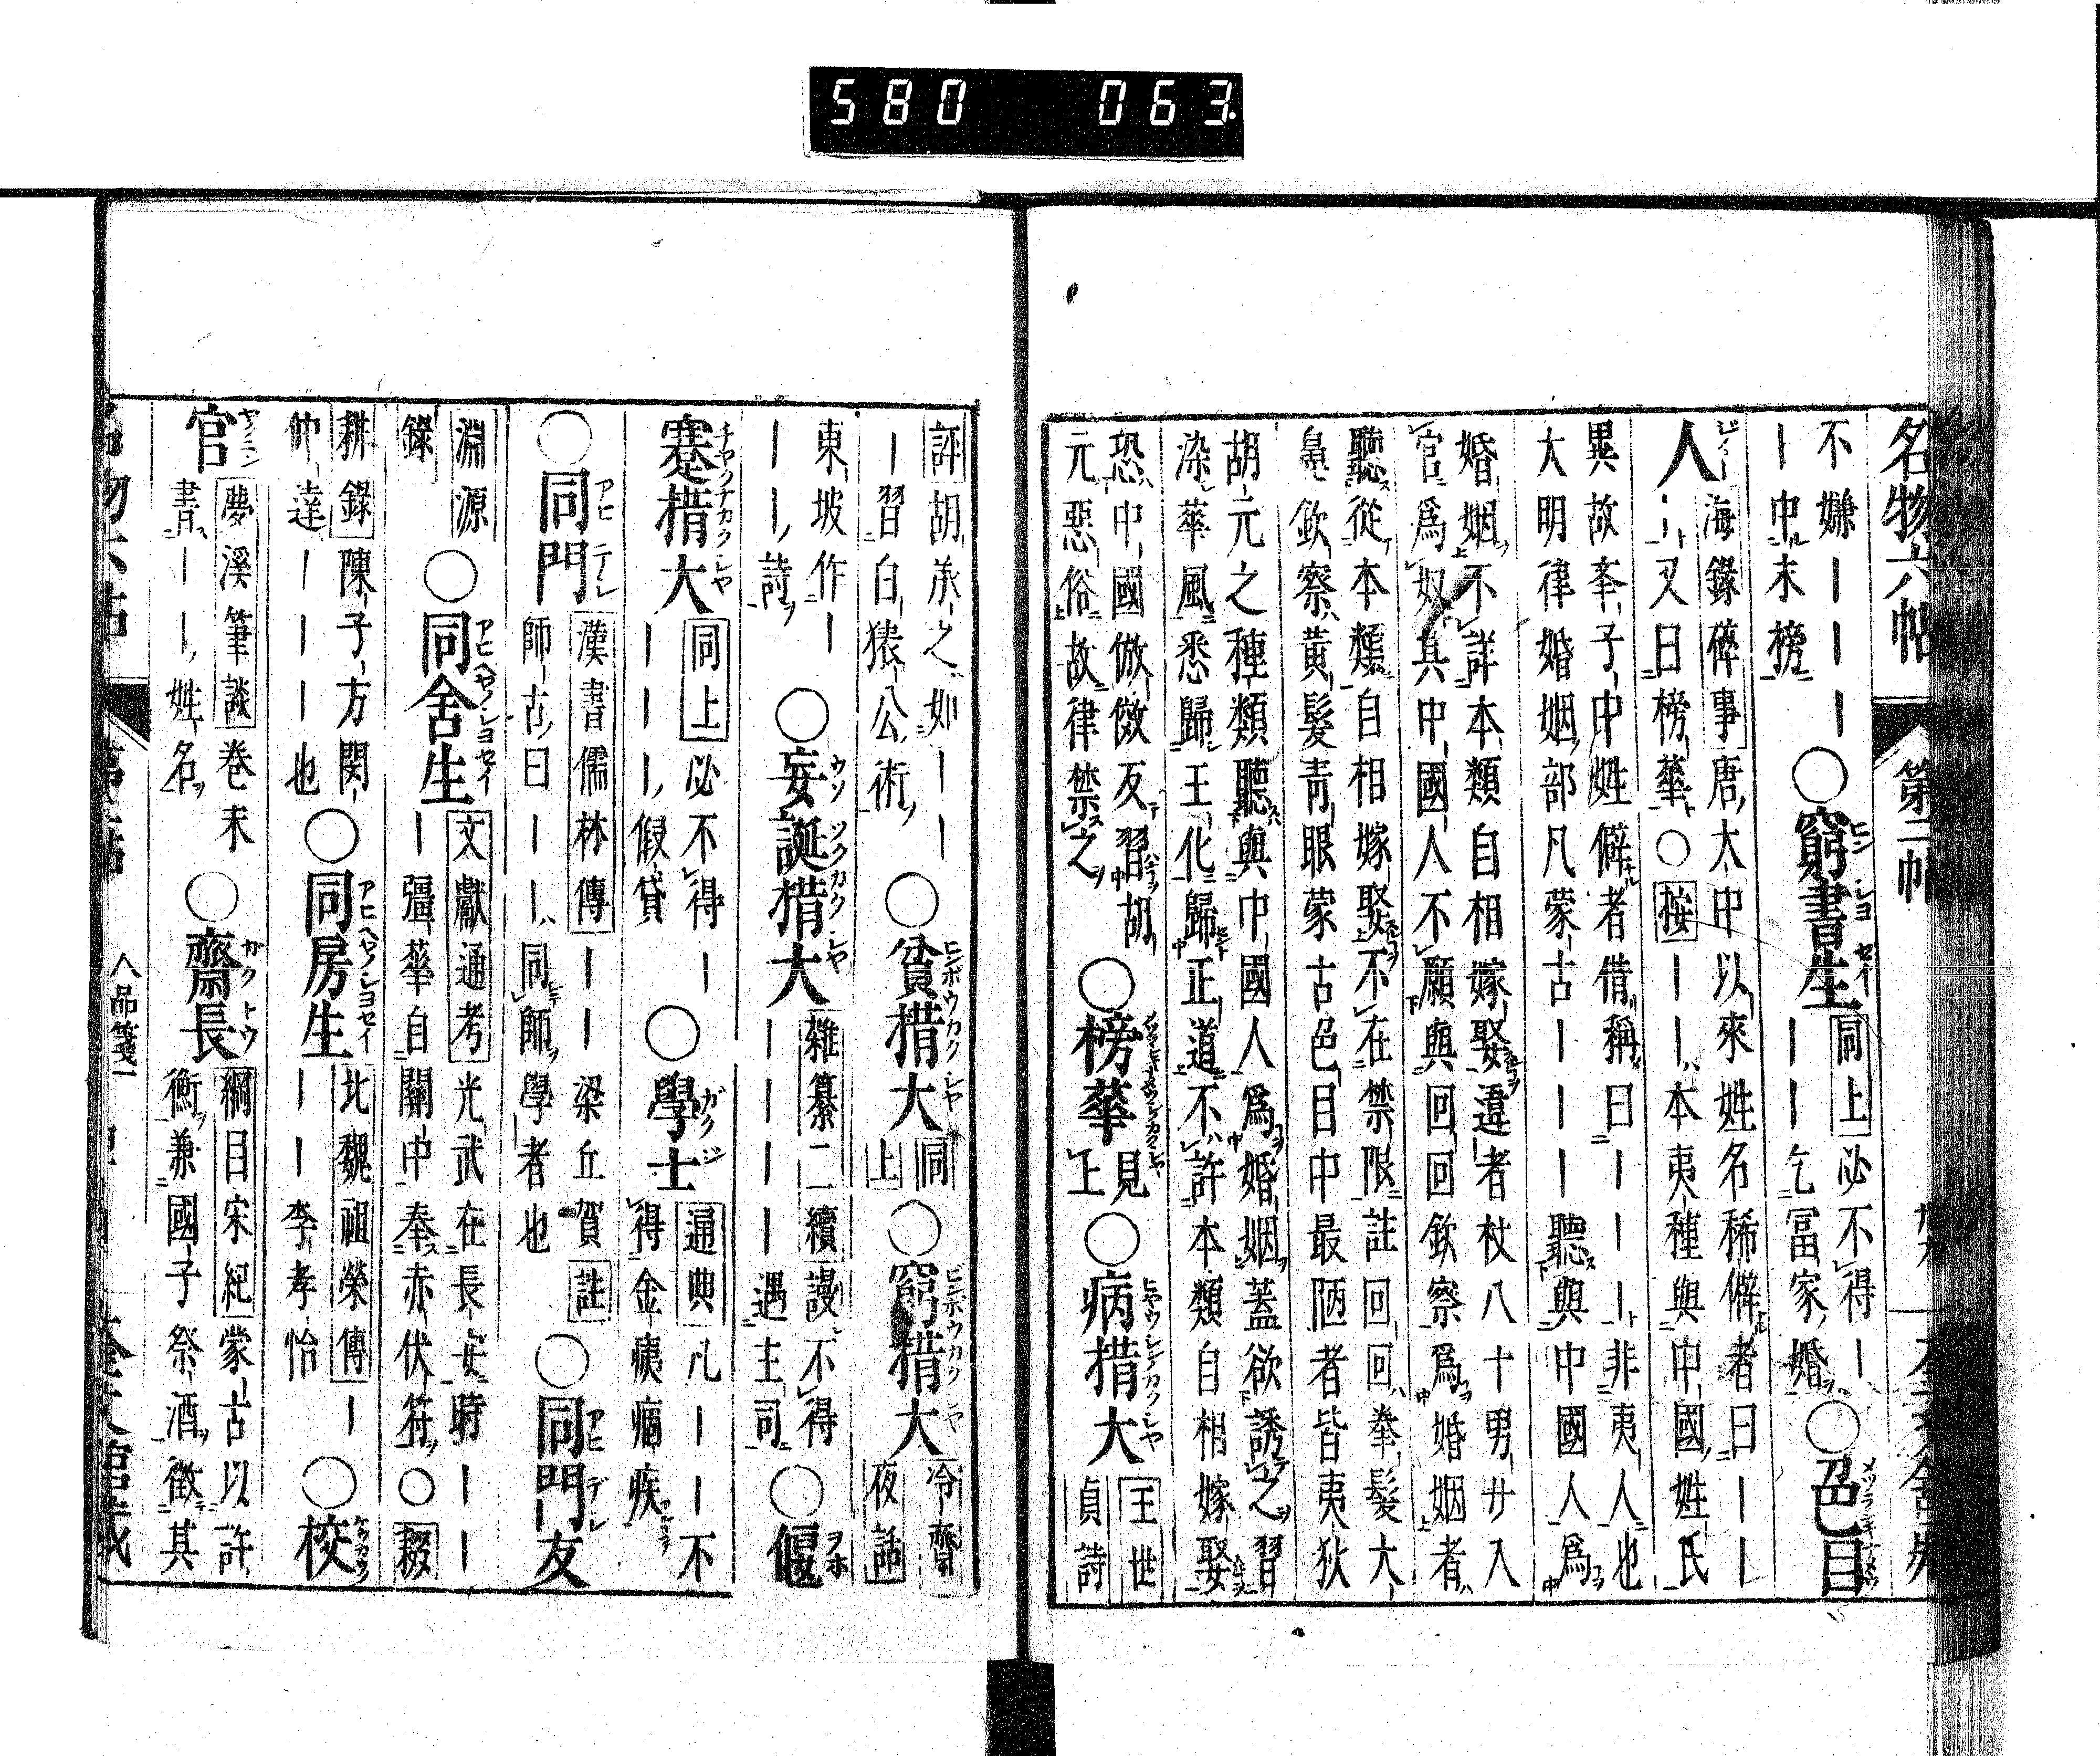 580 063
名物六帖 第二帖
不嫌｜｜｜
｜中末榜
○窮書生 ヒン シヨ セイ
同上必不得｜
｜｜乞冨家婚
○色目
人
海錄碎事唐大中以來姓名稀僻者曰｜｜
｜又曰榜華○按｜｜本夷種與中國姓氏
異故夲子中姓僻者借稱曰｜｜｜非夷人也
大明律婚姻部凡蒙古｜｜｜聽與中國人爲
婚姻不許本類自相嫁娶違者杖八十男女入
官爲奴其中國人不願與回回欽察爲婚姻者
聽從本類自相嫁娶不在禁限註回回拳髮大
鼻欽察黃髮青眼蒙古色目中最陋者皆夷狄
胡元之種類聽與中國人爲婚姻蓋欲誘之習
染華風悉歸王化歸正道不許本類自相嫁娶
恐中國倣傚反習胡
元惡俗故律禁之
○榜華
見上
○病措大
王世
貞詩
評胡濙之如｜｜｜
｜習白猿公術
○貧措大 ヒンボウカクシヤ
同上
○窮措大 ビンボウカクシヤ
冷齋
夜話
東坡作｜｜
｜｜詩
○妄誕措大 ウソツクカクシヤ
雜纂二續謾不得
｜｜｜｜遇主司
○偃
蹇措大
同上必不得｜
｜｜｜假貸
○學士 ガクジ
通典凡｜｜不
得金瘼痼疾
○同門 アヒデシ
漢書儒林傳｜｜梁丘賀註
師古曰｜｜同師學者也
○同門友 アヒデシ
淵源
錄
○同舍生 アヒヘヤノシヨセイ
文獻通考光武在長安時｜｜
｜彊華自關中奉赤伏符○輟
耕錄陳子方閔
帥達｜｜｜也
○同房生 アヒヘヤノシヨセイ
北魏祖榮傳｜
｜｜李孝怡
○校
官
夢溪筆談卷末
書｜｜姓名
○齋長 ガクトウ
綱目宋紀蒙古以許
衡兼國子祭酒徵其
人品箋一